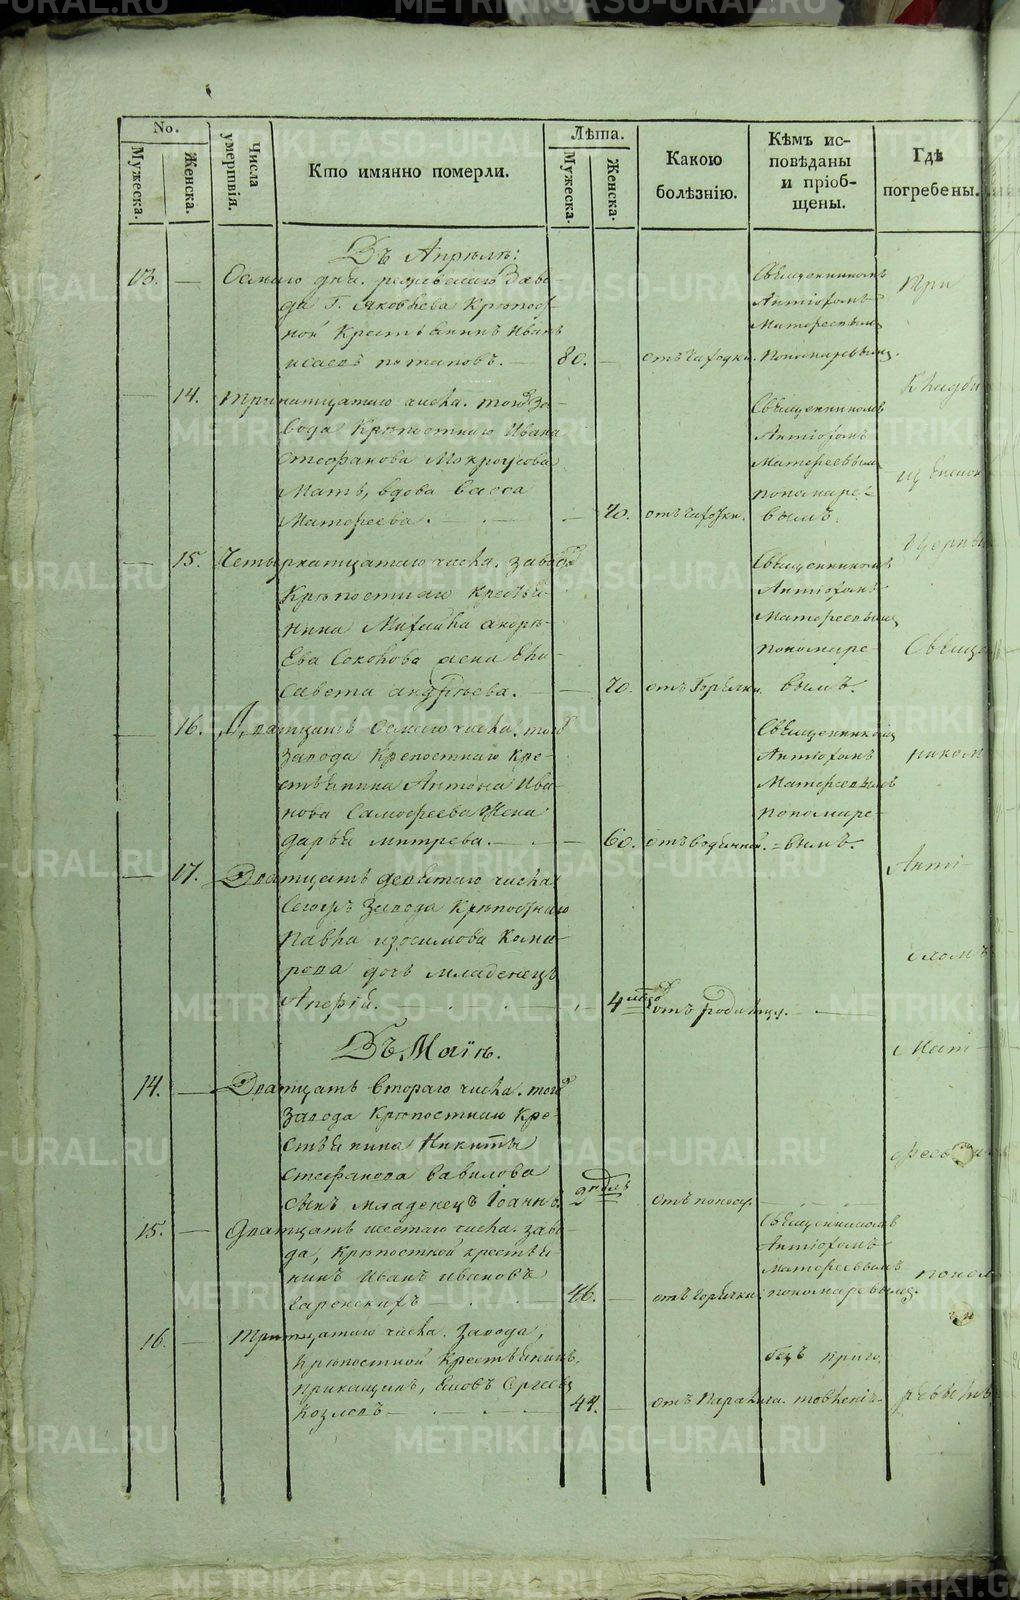 No.
Мужеска.
Женска.
Числа умертвія.
Кто имянно померли.
Лѣта.
Мужеска.
Женска.
Какою болѣзнію.
Кѣмъ исповѣданы и пріобщены.
Гдѣ погребены.
Въ Апрѣлѣ:
13. — Осмаго дня. Заво-
да Г. Яковлева Крѣпост-
ной Крестьянинъ Иванъ
Исаевъ потаповъ. — 80. — отъ чахотки.
Священникомъ
Антіохомъ
Матѳеевымъ
Пономаревымъ.
при
— 14. тринатцатаго числа. того За-
вода Крѣпостнаго Ивана
Стефанова Мокроусова
Мать, вдова Васса
Матѳеева. — 70. отъ чахотки.
Священникомъ
Антіохомъ
Матѳеевымъ
пономаре-
вымъ.
Кладби
— 15. Четырнатцатаго числа. завода
Крѣпостнаго Крестья-
нина Михайла
Ева Соколова жена Ели-
савета андрѣева. — 70. отъ Горячки.
Священникомъ
Антіохомъ
Матѳеевымъ
пономаре-
вымъ.
Церкви
Священ
— 16. Дватцать Осмаго числа. того
Завода Крѣпостнаго Кре-
стьянина Антона Ива-
нова Самоѳеева Жена
дарья митрева. — 60. отъ водяной.
Священникомъ
Антіохомъ
Матѳеевымъ
пономаре-
вымъ.
никомъ
— 17. Дватцать девятаго числа
Сегожъ Завода Крѣпостнаго
Павла изосимова Кома-
рова дочь младенецъ
— 4 отъ родимца. —
Анті-
охомъ
Въ Маіѣ.
Мат-
14. — Дватцать втораго числа. того
Завода Крѣпостнаго Кре-
стьянина Никиты
Стефанова Вавилова
сынъ младенецъ Іоаннъ. 2 отъ поносу. —
15. — Дватцать шестаго числа. заво-
да, Крѣпостной крестья-
нинъ Иванъ Ивановъ
46. — отъ горячки.
Священникомъ
Антіохомъ
Матѳеевымъ
пономаревымъ.
поном
16. — тритцатаго числа. Завода,
Крѣпостной Крестьянинъ,
прикащикъ, Сергеевъ
Козловъ — 44. — отъ Паралича.
безъ приго,
товленія.
ревымъ
METRIKI.GASO-URAL.RU